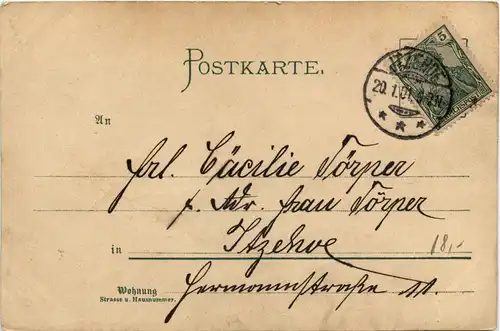 POSTKARTE.
5
ITZEHOE
20.1.01.
An
Frl. Cäcilie Törper
p. Adr. Frau Törper
in Itzehoe
18,-
Wohnung
Strasse u. Hausnummer.
Hermannstraße 11.